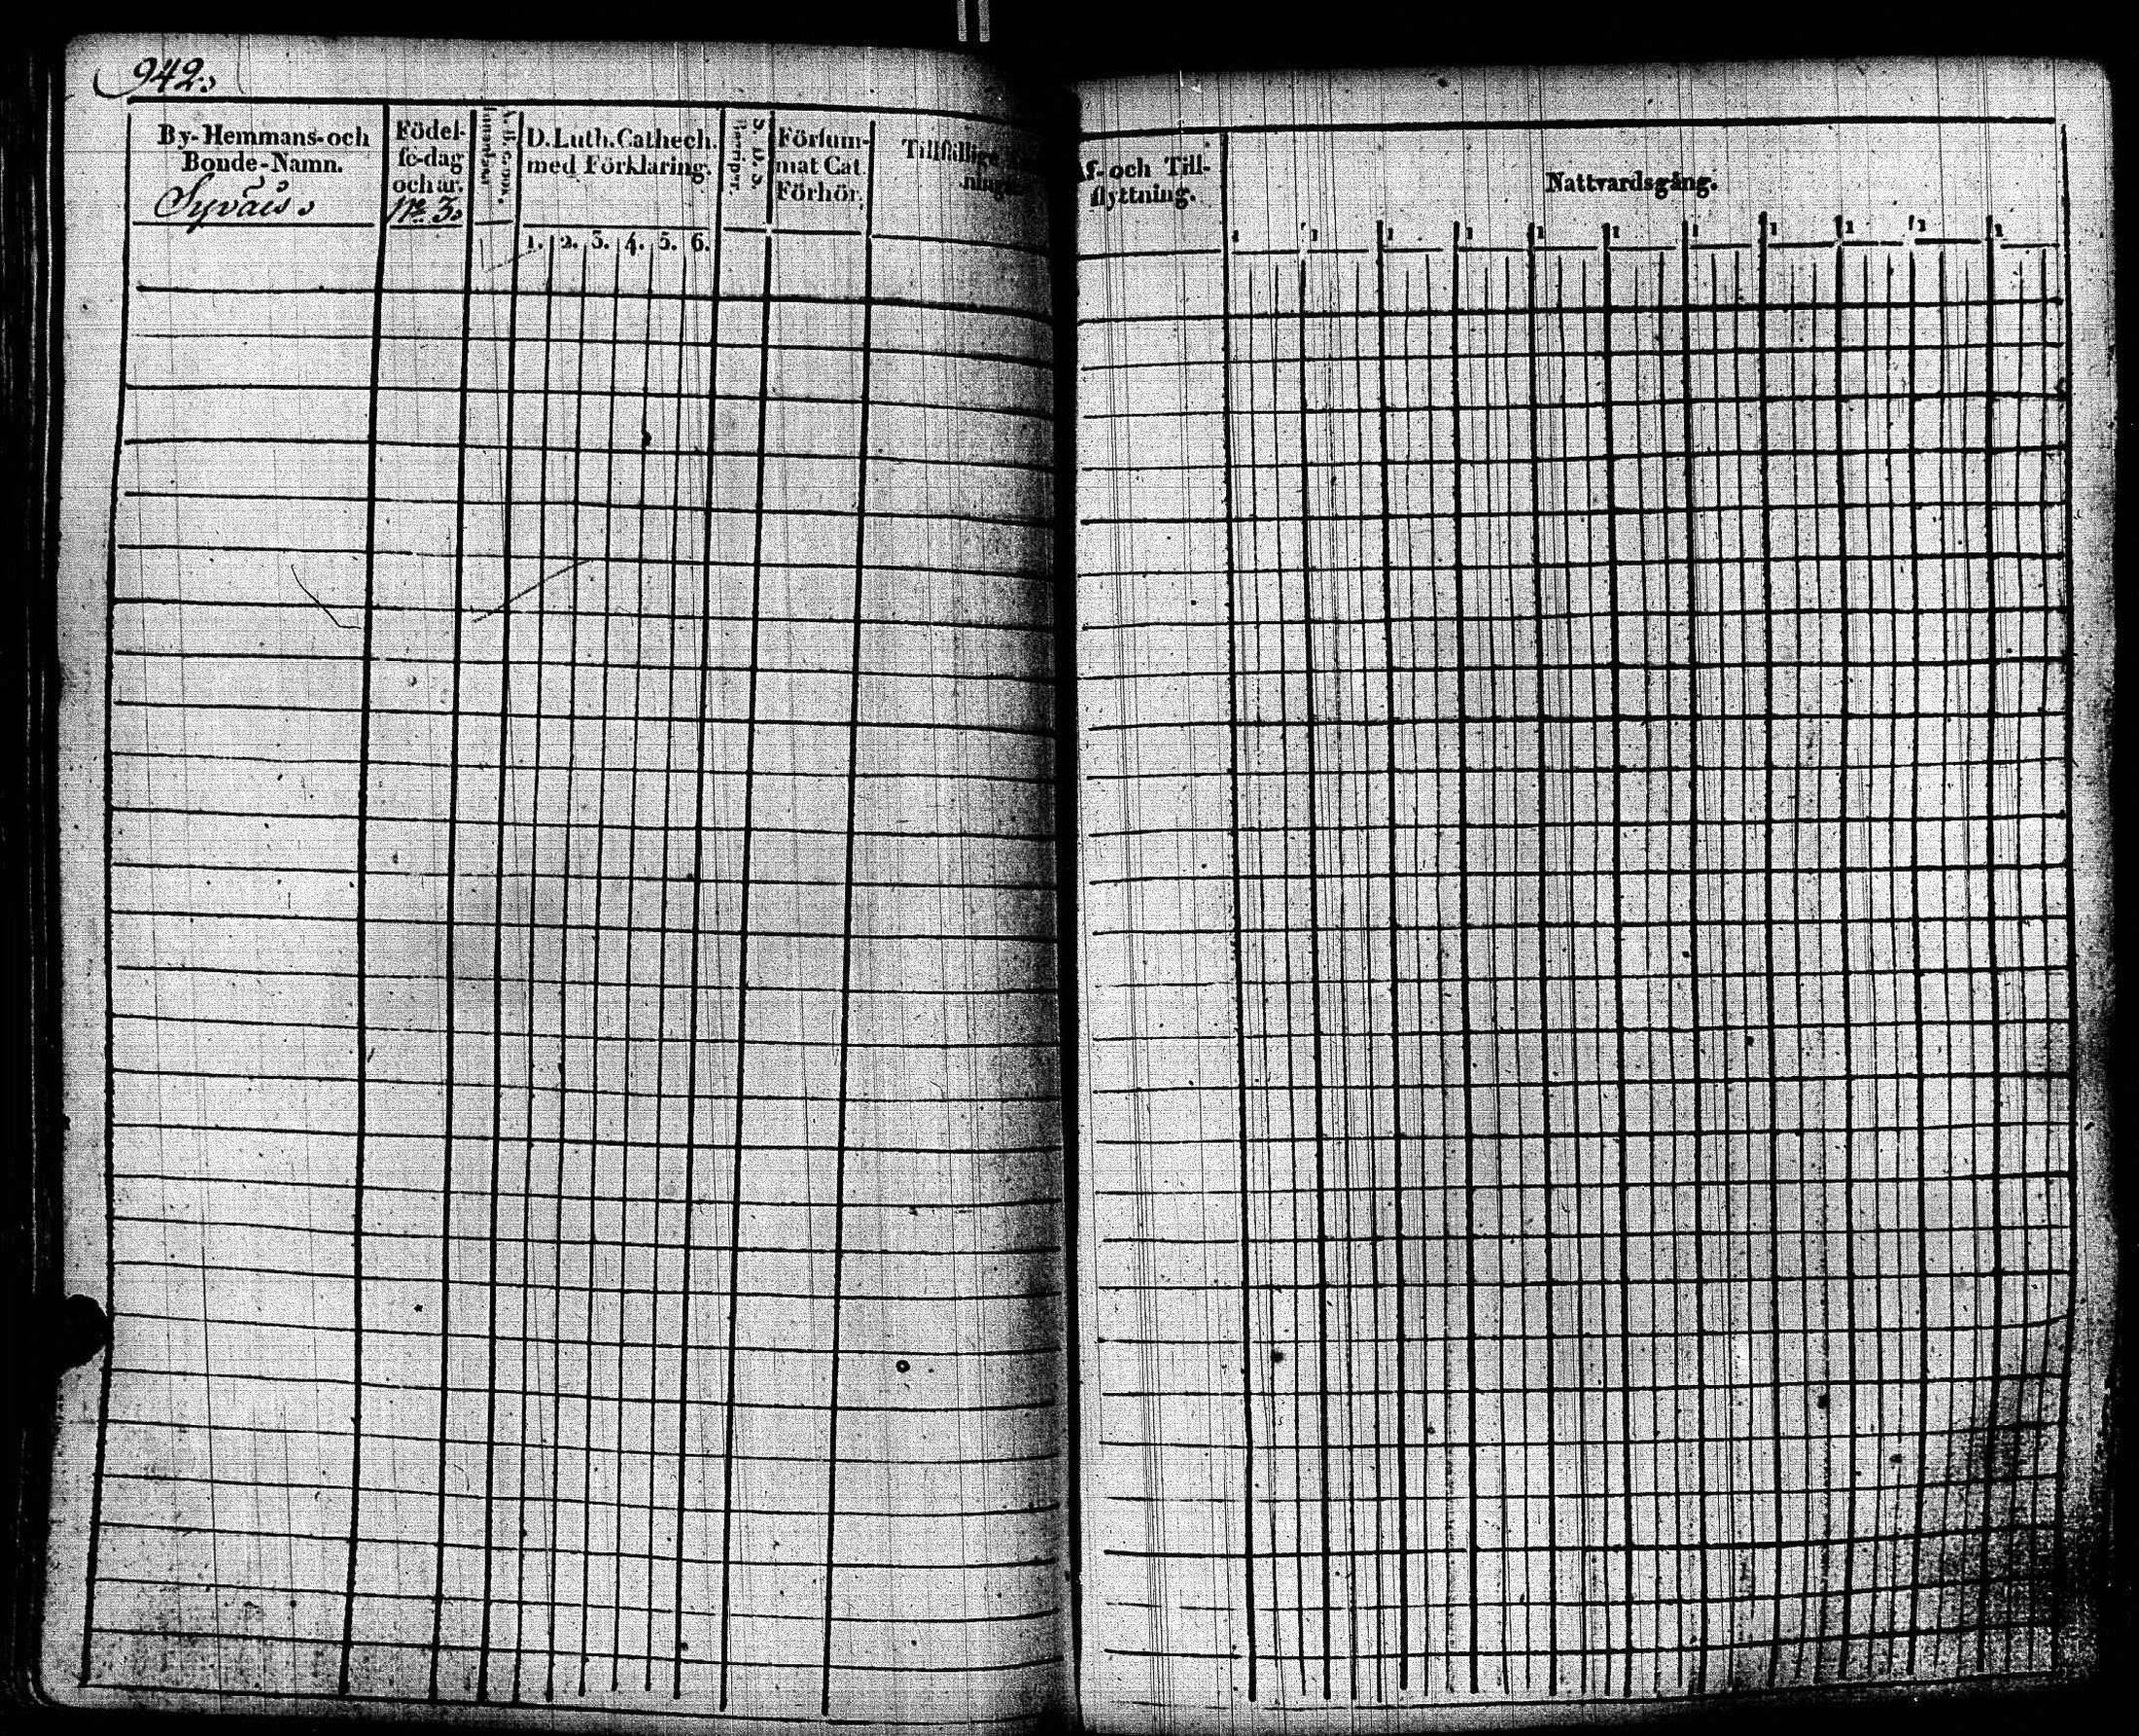 942.
By-Hemmans-och
Bonde-Namn.
Syväis.
Födel-
se-dag
och år.
N:o 3.
Innanläsn.
A.B.C. bok.
D. Luth. Cathech.
med Förklaring.
1. 2. 3. 4. 5. 6.
S. D. S.
Försum-
mat Cat.
Förhör.
Tillfällige
Af- och Till-
flyttning.
Nattvardsgång.
1 1 1 1 1 1 1 1 1 1 1